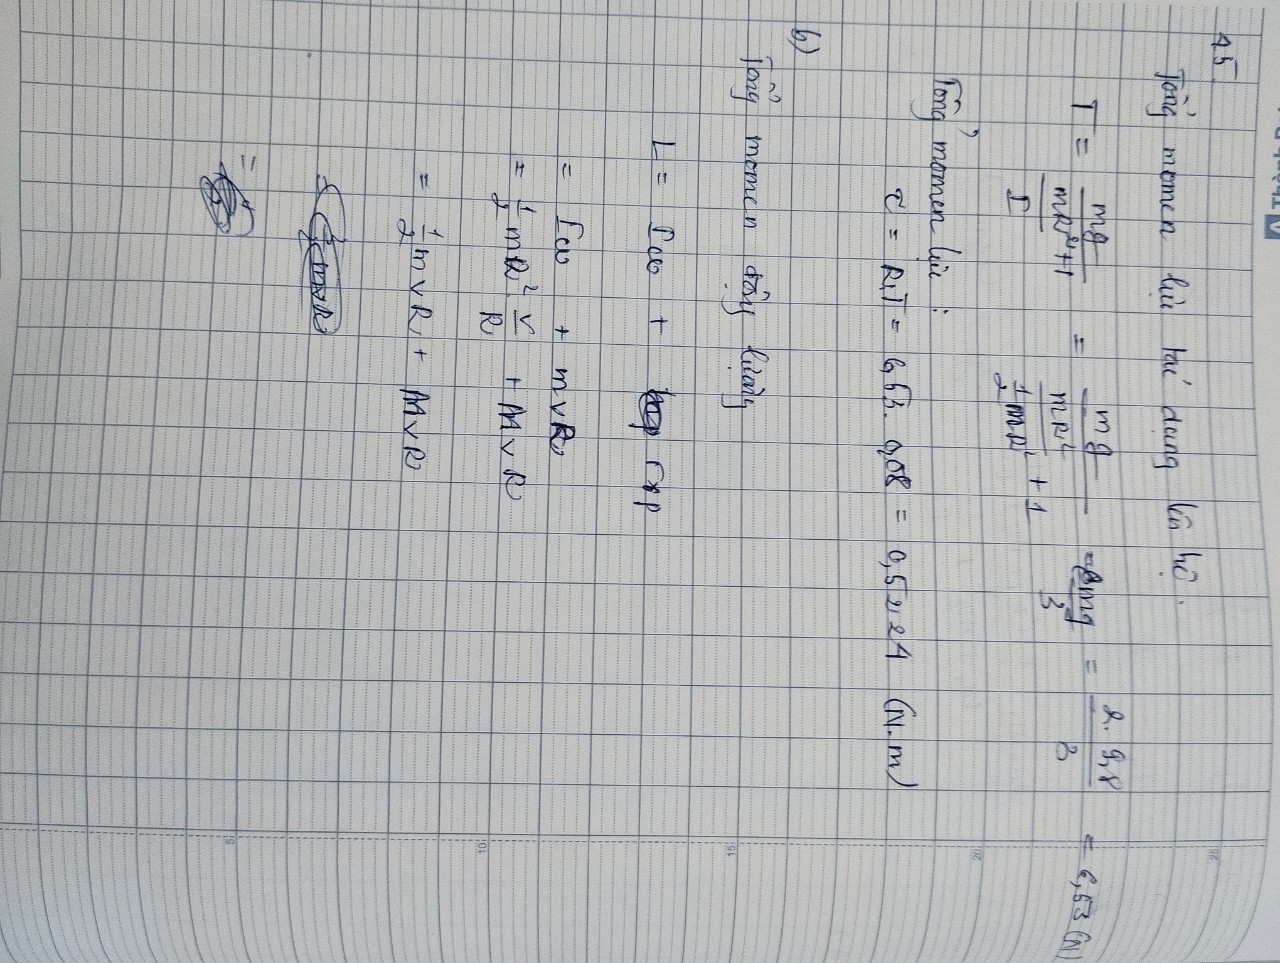 4.5
Tổng momen lực tác dụng lên hệ.
T = mg / (mR²+1 / I) = mg / (mR² / ½mR² + 1) = mg/3 = 2. 9,8 / 3 = 6,53 (N)
Tổng momen lực :
τ = R.T = 6,53. 0,08 = 0,5224 (N.m)
b)
Tổng momen động lượng
L = Iω + r×p
= Iω + mvR
= ½mR² v/R + MvR
= ½mvR + MvR
=
=
25
20
15
10
5